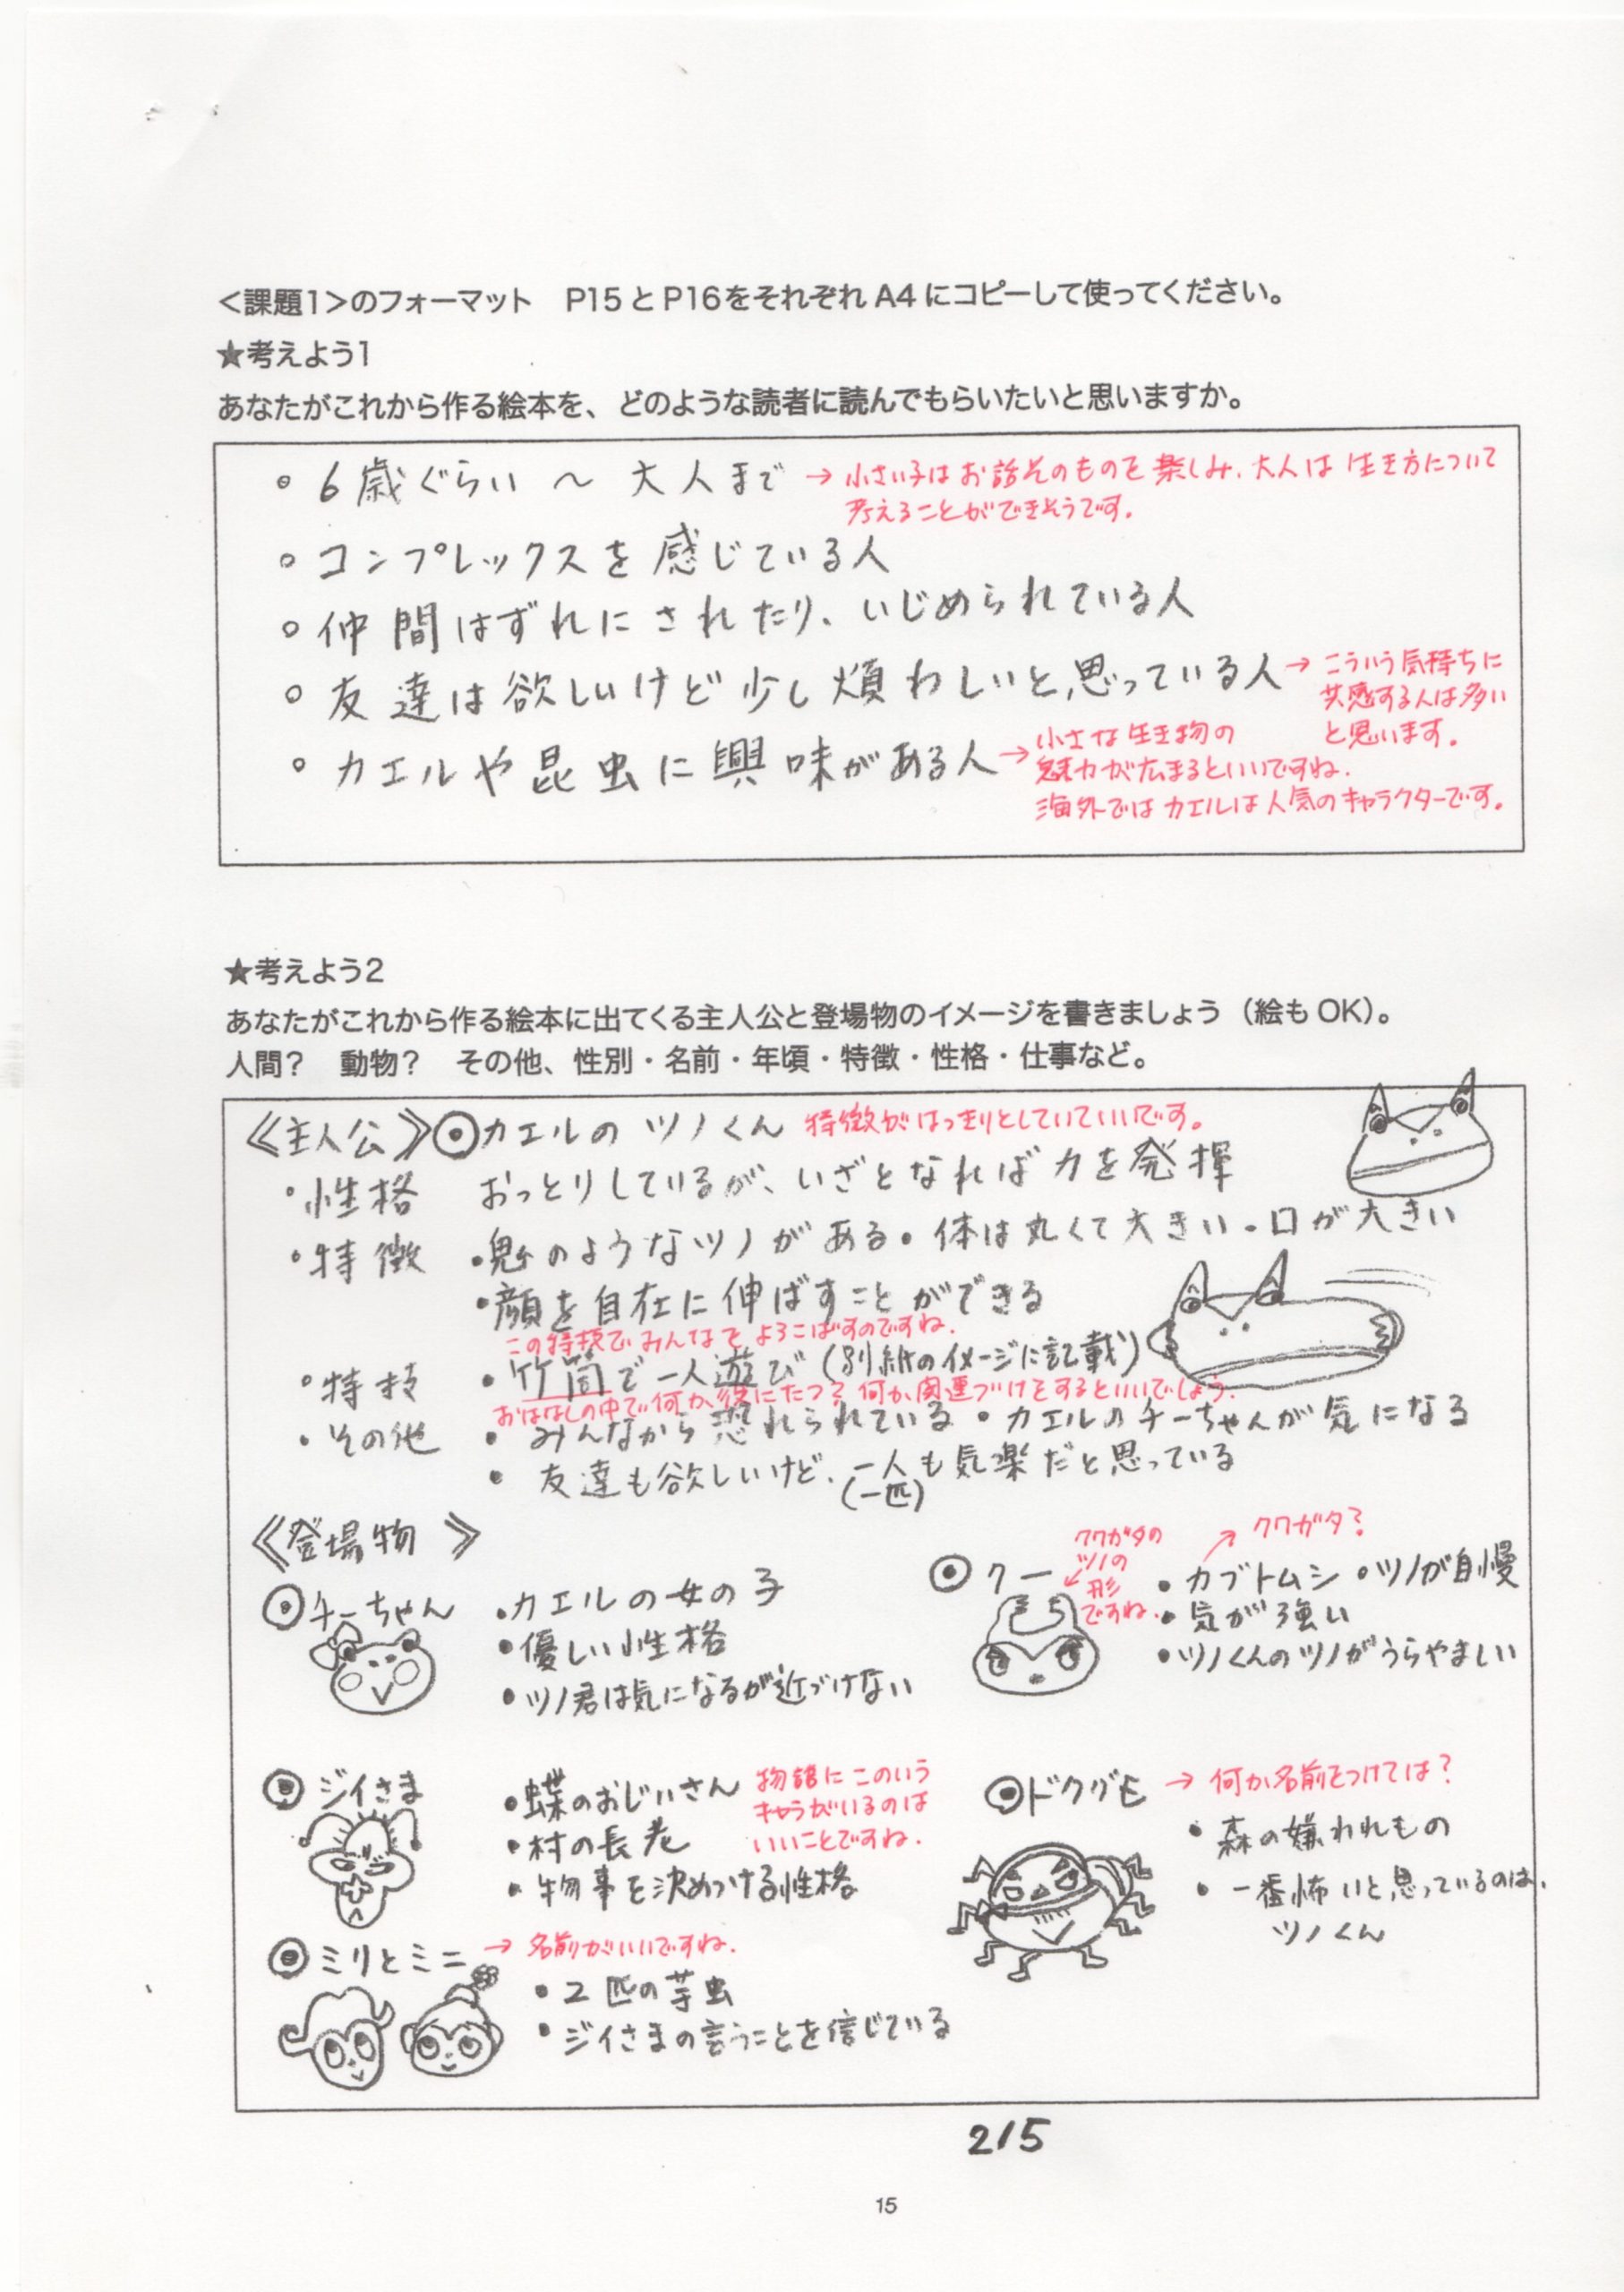 <課題1>のフォーマット　P15とP16をそれぞれA4にコピーして使ってください。
★考えよう1
あなたがこれから作る絵本を、どのような読者に読んでもらいたいと思いますか。
◦ 6歳ぐらい 〜 大人まで → 小さい子はお話そのものを楽しみ、大人は生き方について
考えることができそうです。
◦ コンプレックスを感じている人
◦ 仲間はずれにされたり、いじめられている人
◦ 友達は欲しいけど少し煩わしいと思っている人 → こういう気持ちに
共感する人は多い
と思います。
◦ カエルや昆虫に興味がある人 → 小さな生き物の
魅力が広まるといいですね.
海外ではカエルは人気のキャラクターです。
★考えよう2
あなたがこれから作る絵本に出てくる主人公と登場物のイメージを書きましょう（絵もOK）。
人間？　動物？　その他、性別・名前・年頃・特徴・性格・仕事など。
《主人公》◉カエルの ツノくん 特徴がはっきりとしていていいです。
・性格 おっとりしているが、いざとなれば力を発揮
・特徴 ・鬼のようなツノがある・体は丸くて大きい・口が大きい
・顔を自在に伸ばすことができる
この特技でみんなをよろこばすのですね.
・特技 ・竹筒で一人遊び(別紙のイメージに記載)
おはなしの中で何か役にたつ？何か関連づけをするといいでしょう.
・その他 ・みんなから恐れられている・カエルのチーちゃんが気になる
・友達も欲しいけど、一人も気楽だと思っている
(一匹)
《登場物》
◉チーちゃん ・カエルの女の子
・優しい性格
・ツノ君は気になるが近づけない
◉クー ・カブトムシ ・ツノが自慢
→ クワガタ？
クワガタの
ツノの
形
ですね.
・気が強い
・ツノくんのツノがうらやましい
◉ジイさま ・蝶のおじいさん
・村の長老
・物事を決めつける性格
物語にこのいう
キャラがいるのは
いいことですね.
◉ドクグモ → 何か名前をつけては？
・森の嫌われもの
・一番怖いと思っているのは、
ツノくん
◉ミリとミニ → 名前がいいですね.
・2匹の芋虫
・ジイさまの言うことを信じている
2/5
15